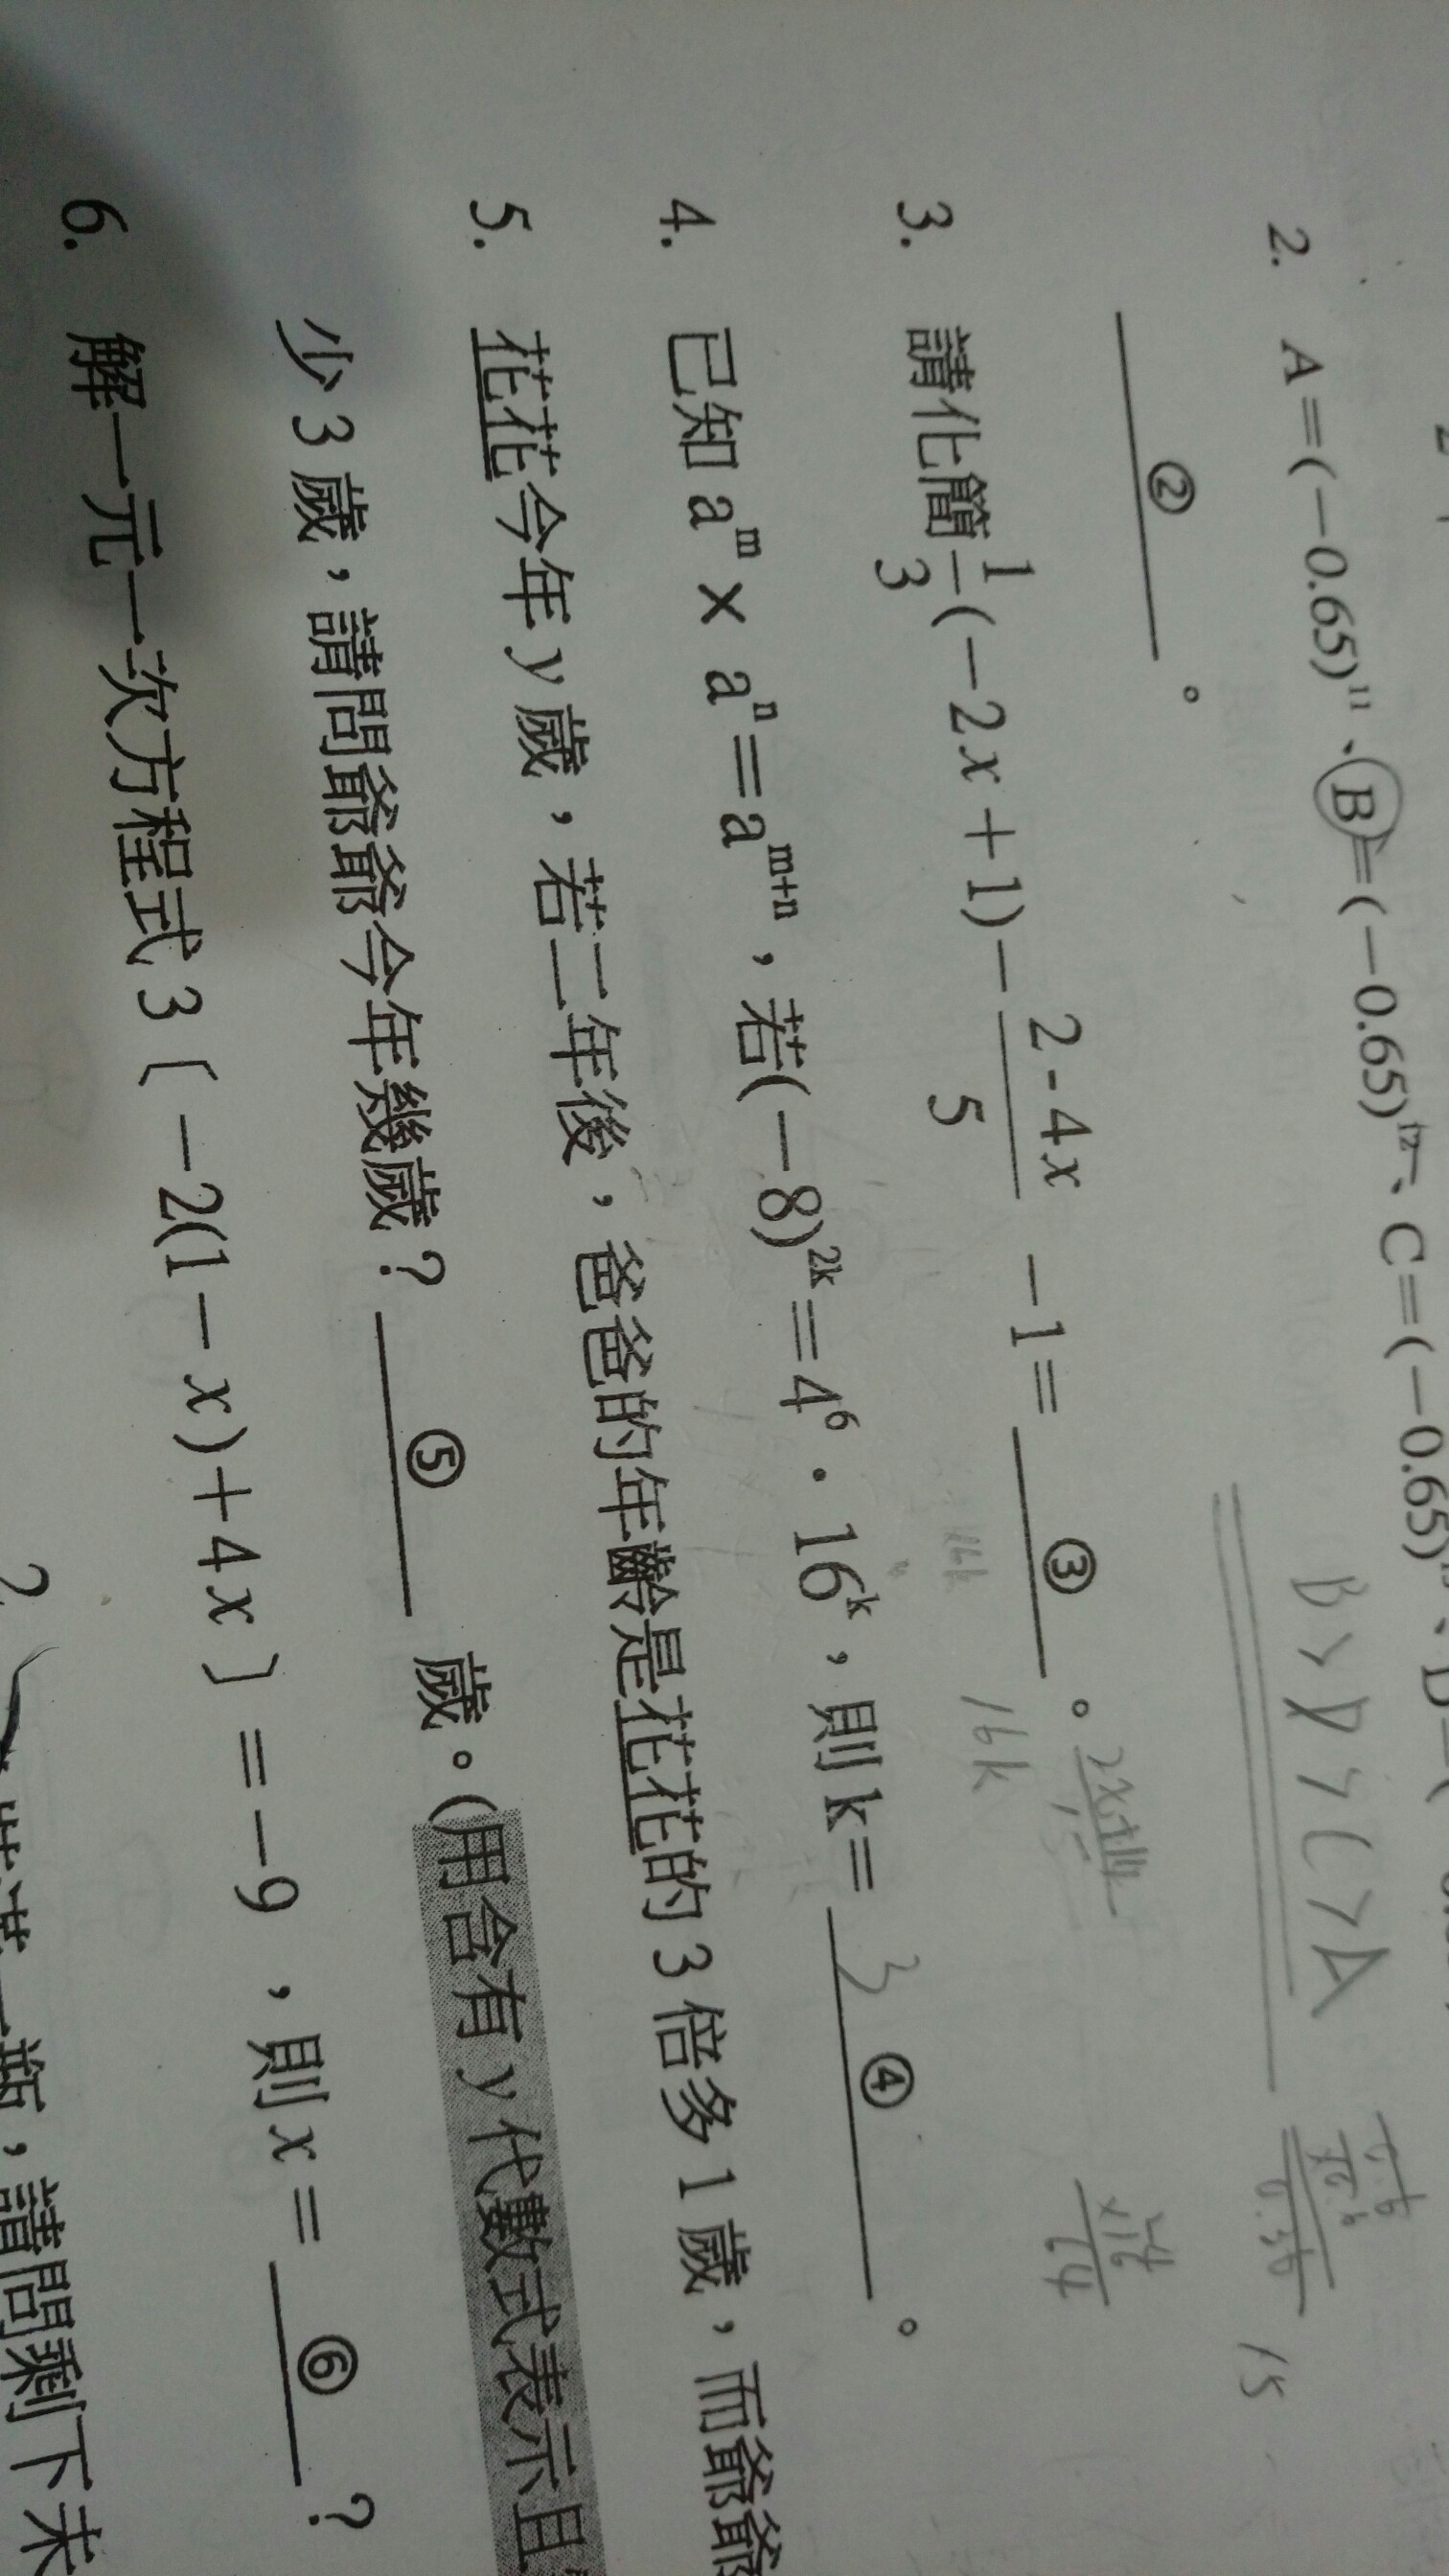 2. A＝(－0.65)¹¹、B＝(－0.65)¹²、C＝(－0.65)¹³、D＝(
B > D > C > A
② 。
15
3. 請化簡\frac{1}{3}(－2x＋1)－\frac{2-4x}{5} －1＝ ③ 。
16k
16k
4. 已知 aᵐ × aⁿ＝aᵐ⁺ⁿ，若(－8)²ᵏ＝4⁶．16ᵏ，則 k＝ 3 ④ 。
5. 花花今年 y 歲，若二年後，爸爸的年齡是花花的 3 倍多 1 歲，而爺爺
少 3 歲，請問爺爺今年幾歲？ ⑤ 歲。(用含有 y 代數式表示且
6. 解一元一次方程式 3〔－2(1－x)＋4x〕＝－9，則 x＝ ⑥ ？
瓶，請問剩下來